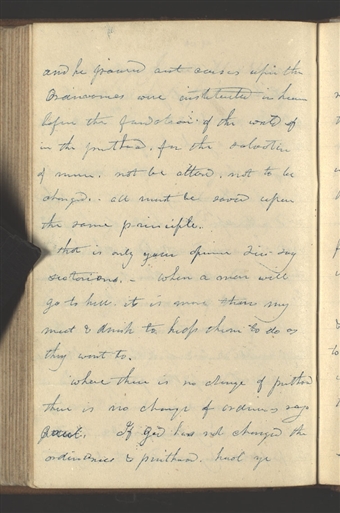 and he pronounced out curses upon the
Ordinances were instituted in heaven
before the foundation of the world of
in the priesthood, for the salvation
of men. not be altered. not to be
changed. all must be saved upon
the same principle.
that is only your opinion Sir say
sectarians. - when a man will
go to hell it is more than my
meat & drink to help them to do as
they want to.
where there is no change of priesthood
there is no change of ordinances says
Paul. If God has not changed the
ordinances & priesthood. howl ye